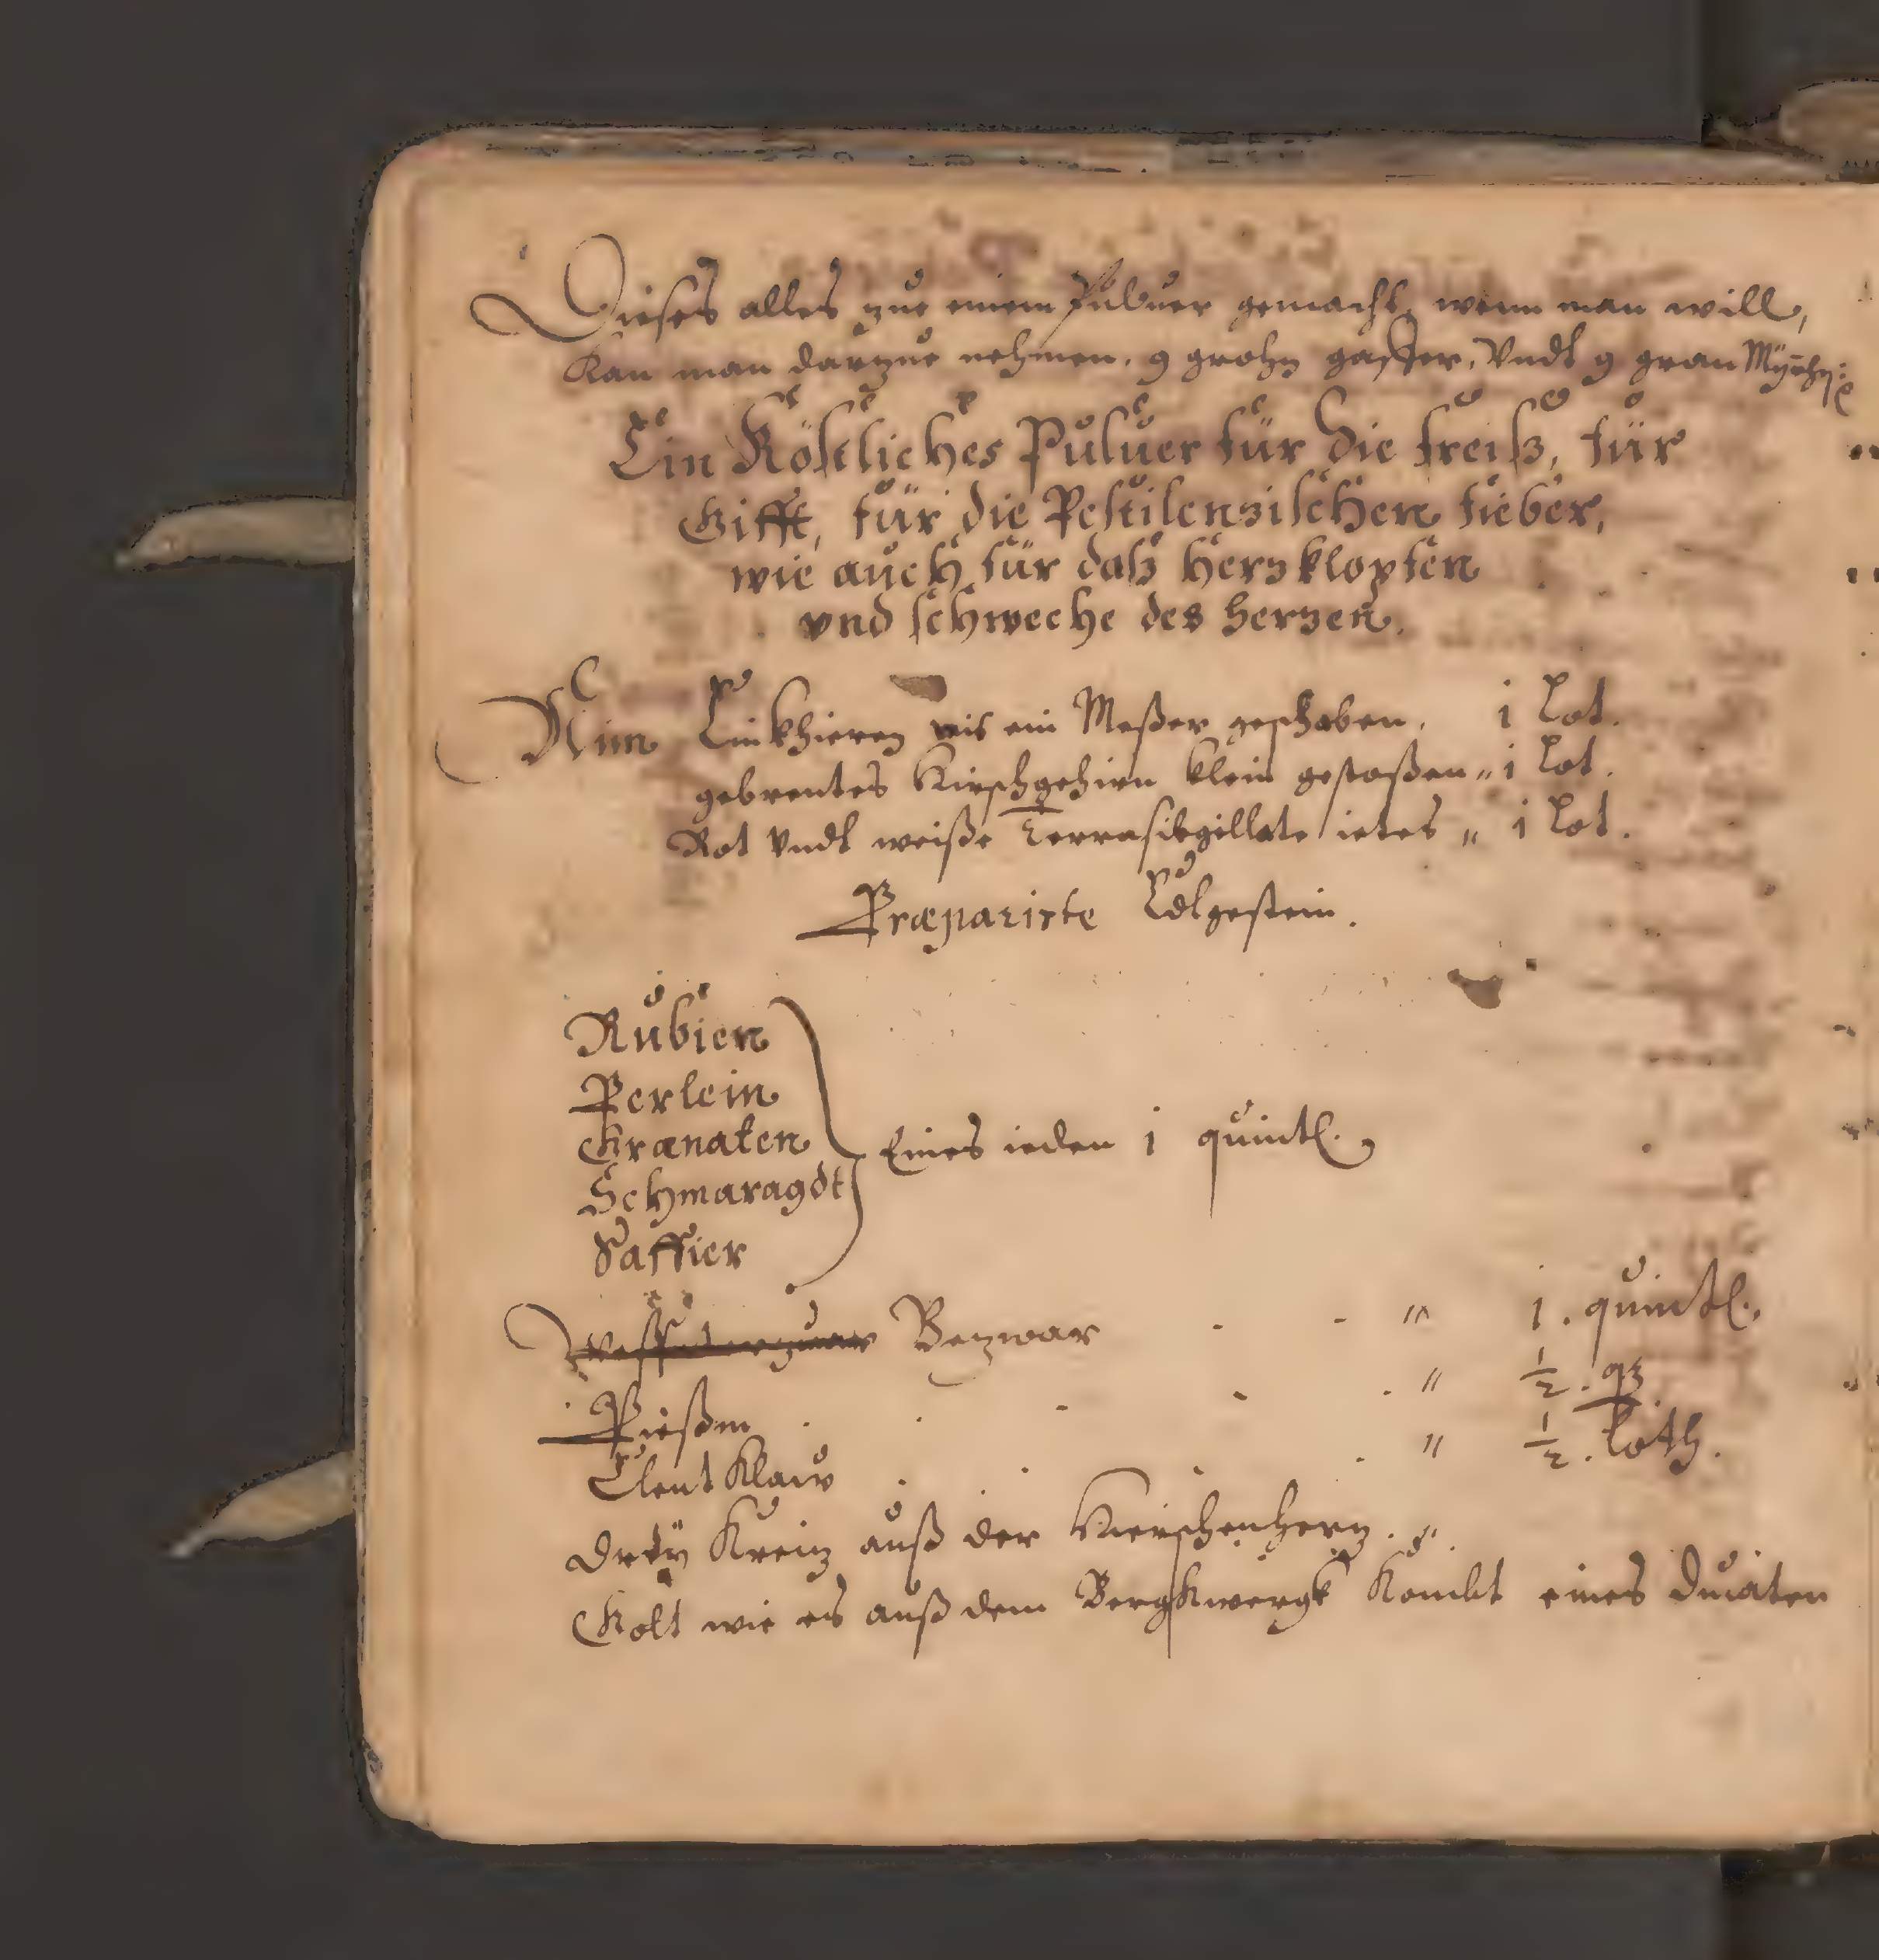 Dieses alles zue einem Puluer gemacht, wenn man will,
Kan man darzue nehmen. 9 grohn gaffer, Vndt 9 gran
Ein Köstliches Puluer für Die freiß, für
Gifft, für die Pestilenzischen fieber,
wie auch für daß herz klopfen
vnd schweche des herzen.
Nim Einkhieren mit ein Meßer geschaben. i Lot.
gebrentes Hirschgehirn klein gestoßen „ i Lot.
Rot Vndt weiße Terrasibgillate ietes „ i Lot.
Præparirte Edlgestein.
Rubien
Perlein
Granaten
Eines ieden 1 quintl.
Schmaragdt
Saffier
Bezwar „ 1. quintl.
Pießm „ ½. q
Elent Klaw „ ½. Loth.
Drey Kreiz auß der Hierschenherz. „
Golt wie es auß dem Bergkwergk Kombt eines Ducaten